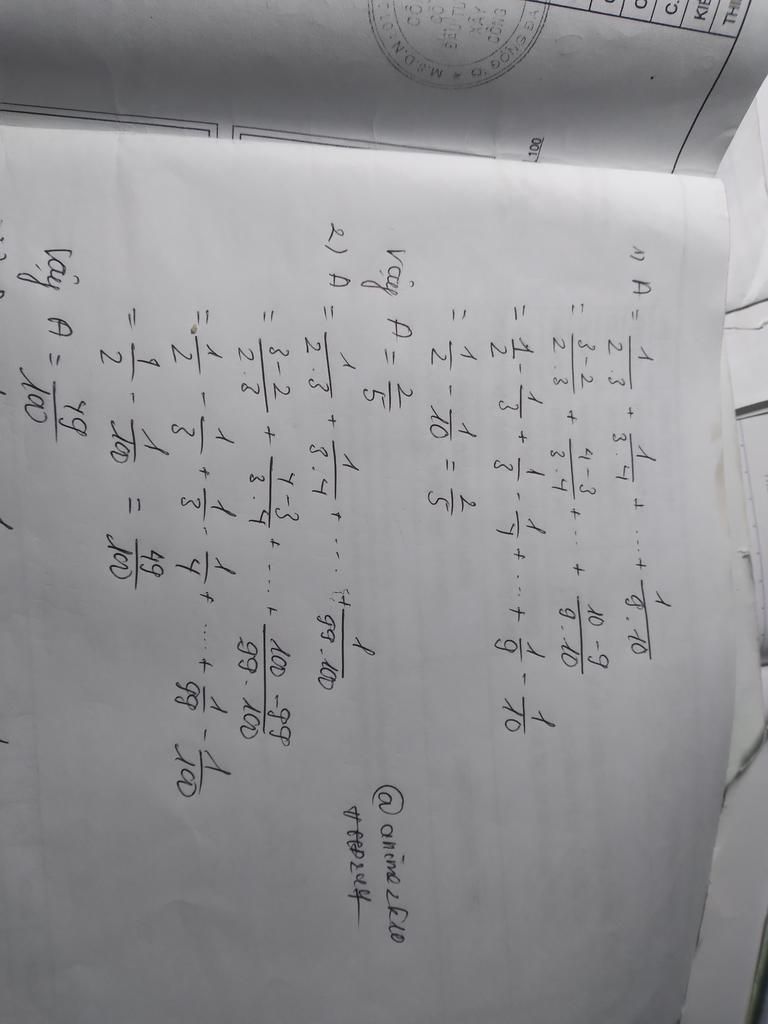 1) A = 1/2.3 + 1/3.4 + ... + 1/9.10
= 3-2/2.3 + 4-3/3.4 + ... + 10-9/9.10
= 1/2 - 1/3 + 1/3 - 1/4 + ... + 1/9 - 1/10
= 1/2 - 1/10 = 2/5
Vậy A = 2/5
2) A = 1/2.3 + 1/3.4 + ... + 1/99.100
= 3-2/2.3 + 4-3/3.4 + .... + 100-99/99.100
= 1/2 - 1/3 + 1/3 - 1/4 + .... + 1/99 - 1/100
= 1/2 - 1/100 = 49/100
Vậy A = 49/100
@anime2k10
100
M.S.D.N: 01
XÂY
ĐỐNG ĐA